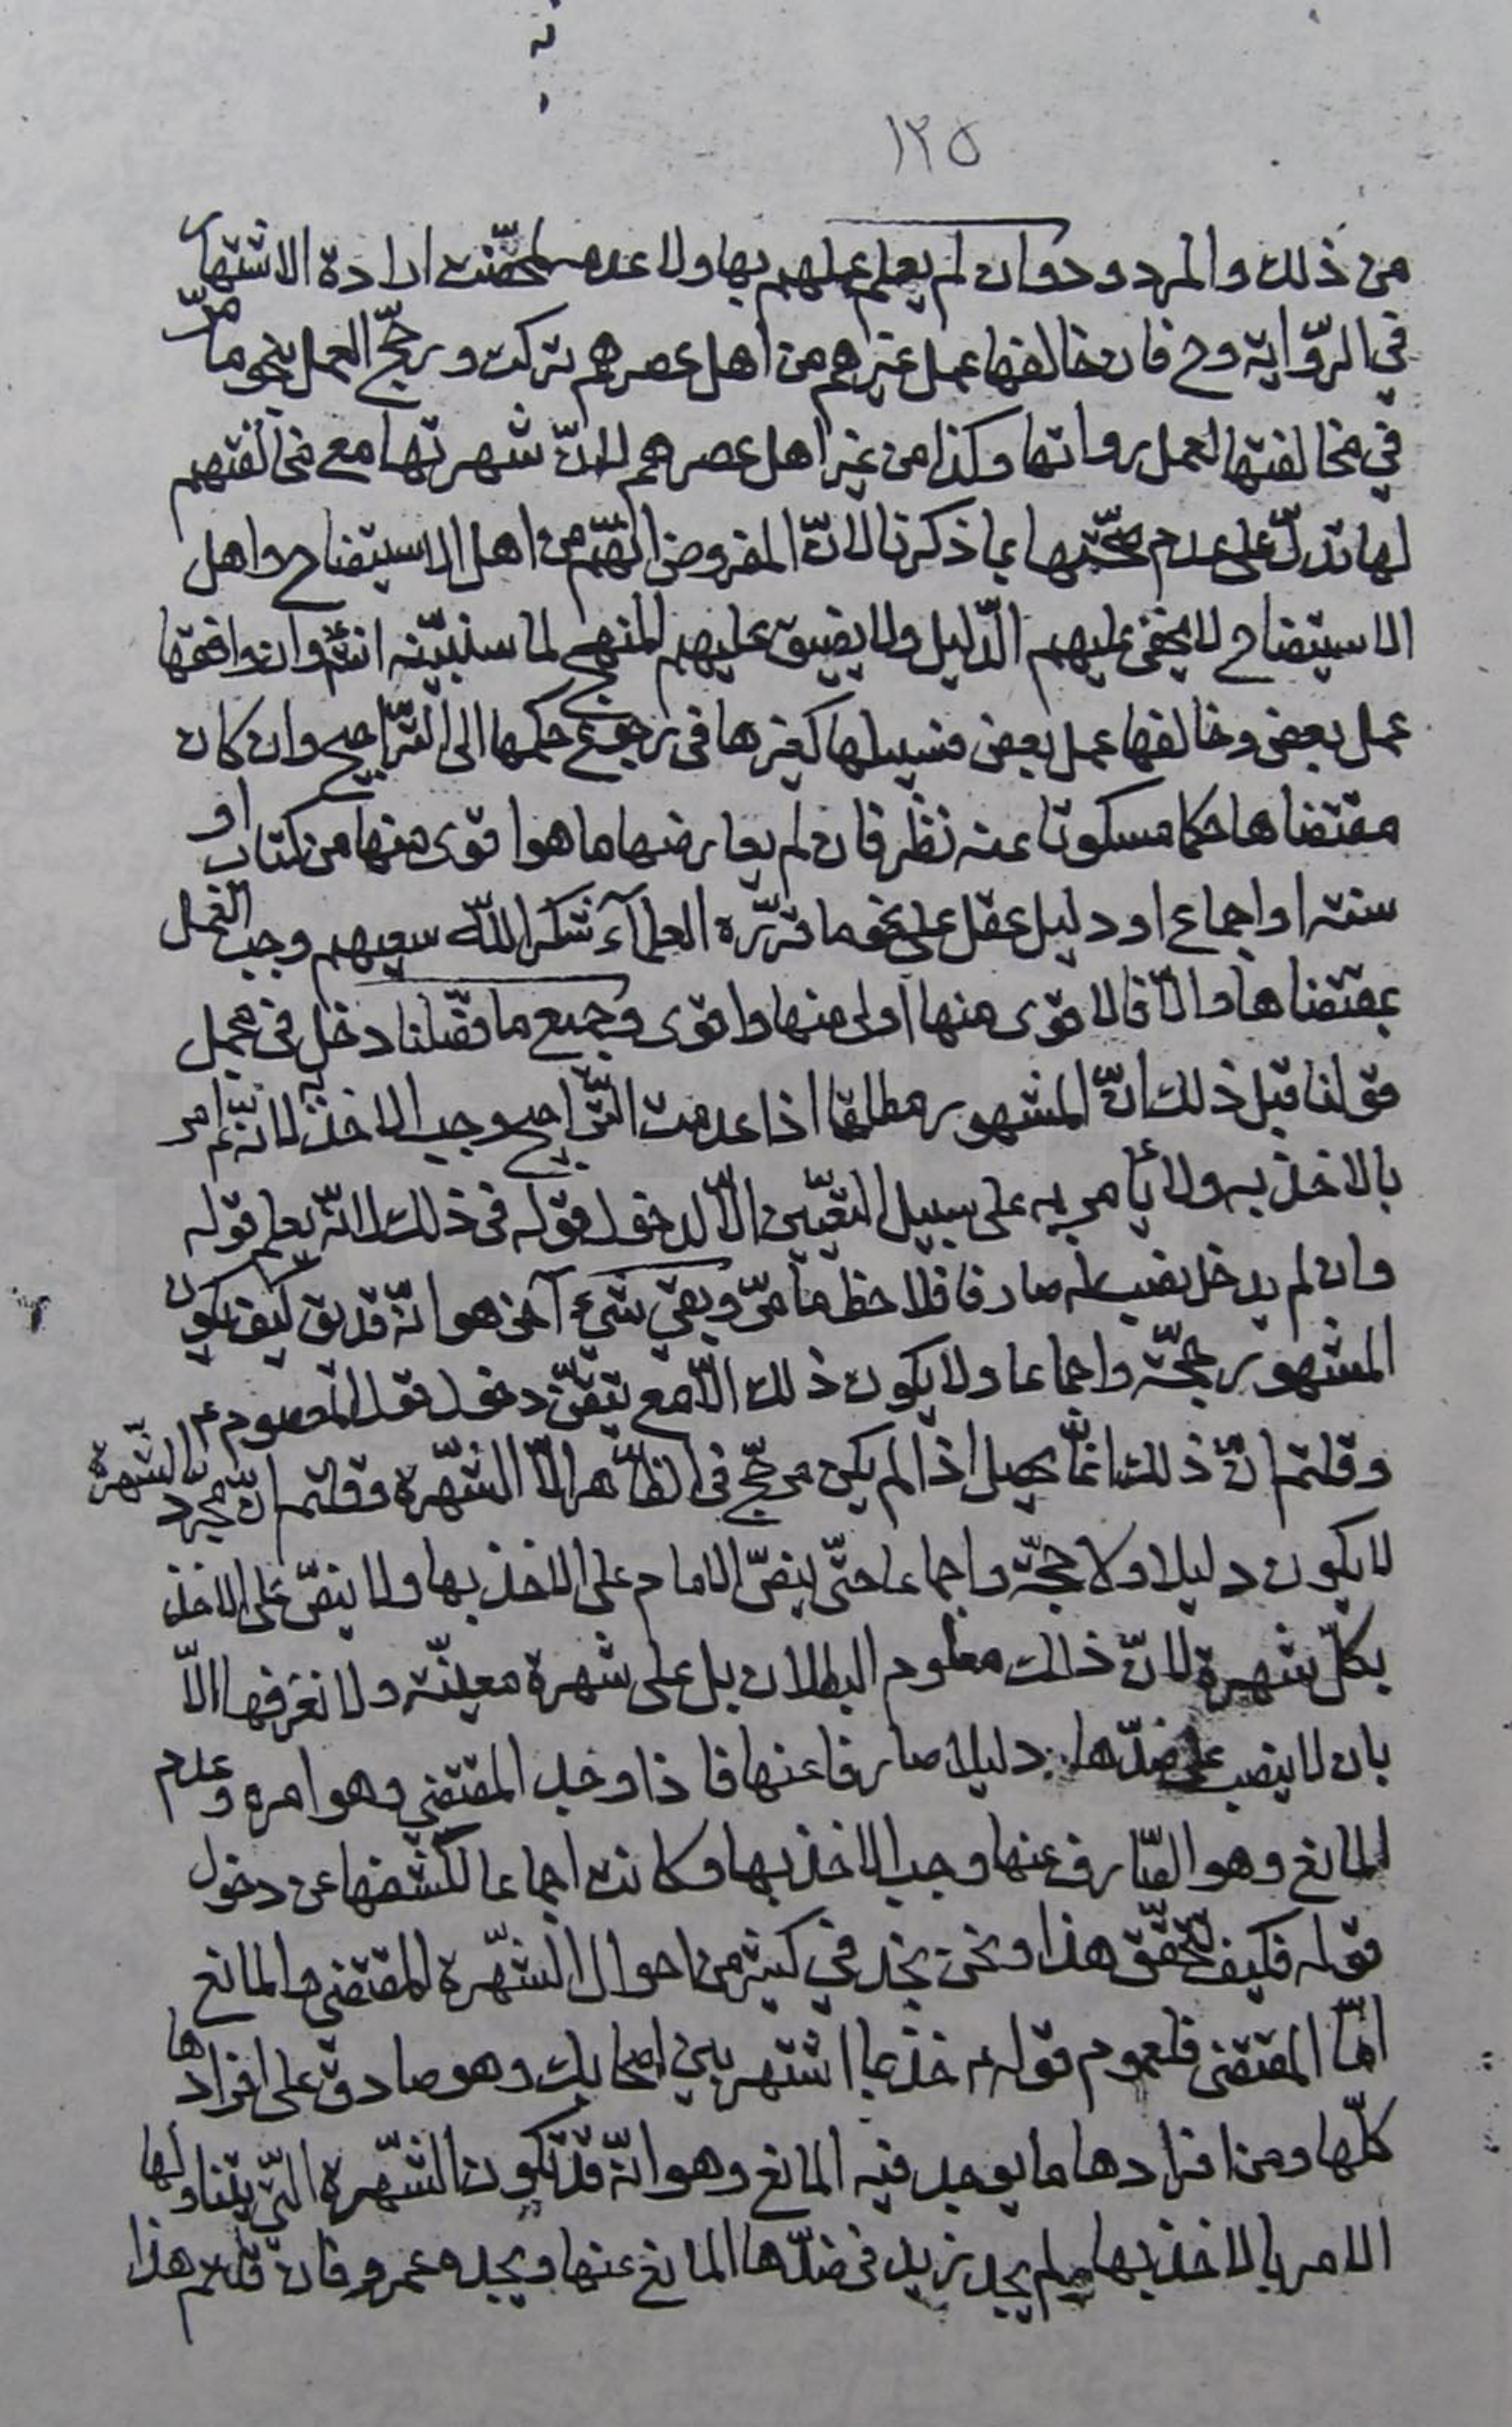 ١٢٥
من ذلك والمردود وان لم يعلم عملهم بها ولا عدمه تمحّضت ارادة الاشتهار
في الرّواية وح فان خالفها عمل غيرهم من اهل عصرهم تركت ورجّح العمل بنحو ما مرّ
في مخالفتها لعمل رواتها وكذا من غير اهل عصرهم لانّ شهرتها مع مخالفتهم
لها تدلّ على عدم صحّتها بما ذكرنا لانّ المفروض انّهم من اهل الاستيضاح واهل
الاستيضاح لا يخفى عليهم الدّليل ولا يضيق عليهم المنهج لما سنبيّنه انش وان وافقها
عمل بعض وخالفها عمل بعض فسبيلها كغيرها في رجوع حكمها الى التّراجيح وان كان
مقتضاها حكما مسكوتا عنه نظر فان لم يعارضها ما هو اقوى منها من كتاب او
سنة او اجماع او دليل عقل على نحو ما قرّره العلمآء شكر اللّه سعيهم وجب العمل
بمقتضاها والّا فالاقوى منها اولى منها واقوى وجميع ما فصّلنا دخل في مجمل
قولنا قبل ذلك انّ المشهور مطلقا اذا عدمت التّراجيح وجب الاخذ به لانّه ع امر
بالاخذ به ولا يأمر به على سبيل التعيّين الّا لدخول قوله في ذلك لانّه يعلم قوله
وان لم يدخل نصب له صارفا فلاحظ ما مرّ وبقي شيء آخر هو انّه قد يق كيف يكون
المشهور حجّة واجماعا ولا يكون ذلك الّا مع تيقّن دخول قول المعصوم ع
وقلتم انّ ذلك انّما يحصل اذا لم يكن مرجّح في الظّاهر الّا الشّهرة وقلتم انّ مجرد الشّهرة
لا يكون دليلا ولا حجّة واجماعا حتّى ينصّ الامام على الاخذ بها ولا ينصّ على الاخذ
بكلّ شهرة لانّ ذلك معلوم البطلان بل على شهرة معيّنة ولا نعرفها الّا
بان لا ينصب على ضدّها دليلا صارفا عنها فاذا وجد المقتضي وهو امره وعدم
المانع وهو الصّارف عنها وجب الاخذ بها وكانت اجماعا لكشفها عن دخول
قوله فكيف يتحقّق هذا ونحن نجد في كثير من احوال الشّهرة المقتضي والمانع
امّا المقتضى فلعموم قوله ع خذ بما اشتهر بين اصحابك وهو صادق على افرادها
كلّها ومن افرادها ما يوجد فيه المانع وهو انّه قد تكون الشّهرة الّتي يتناولها
الامر بالاخذ بها ولم يجد زيد في ضدّها المانع عنها ويجده عمرو فان قلتم هذا